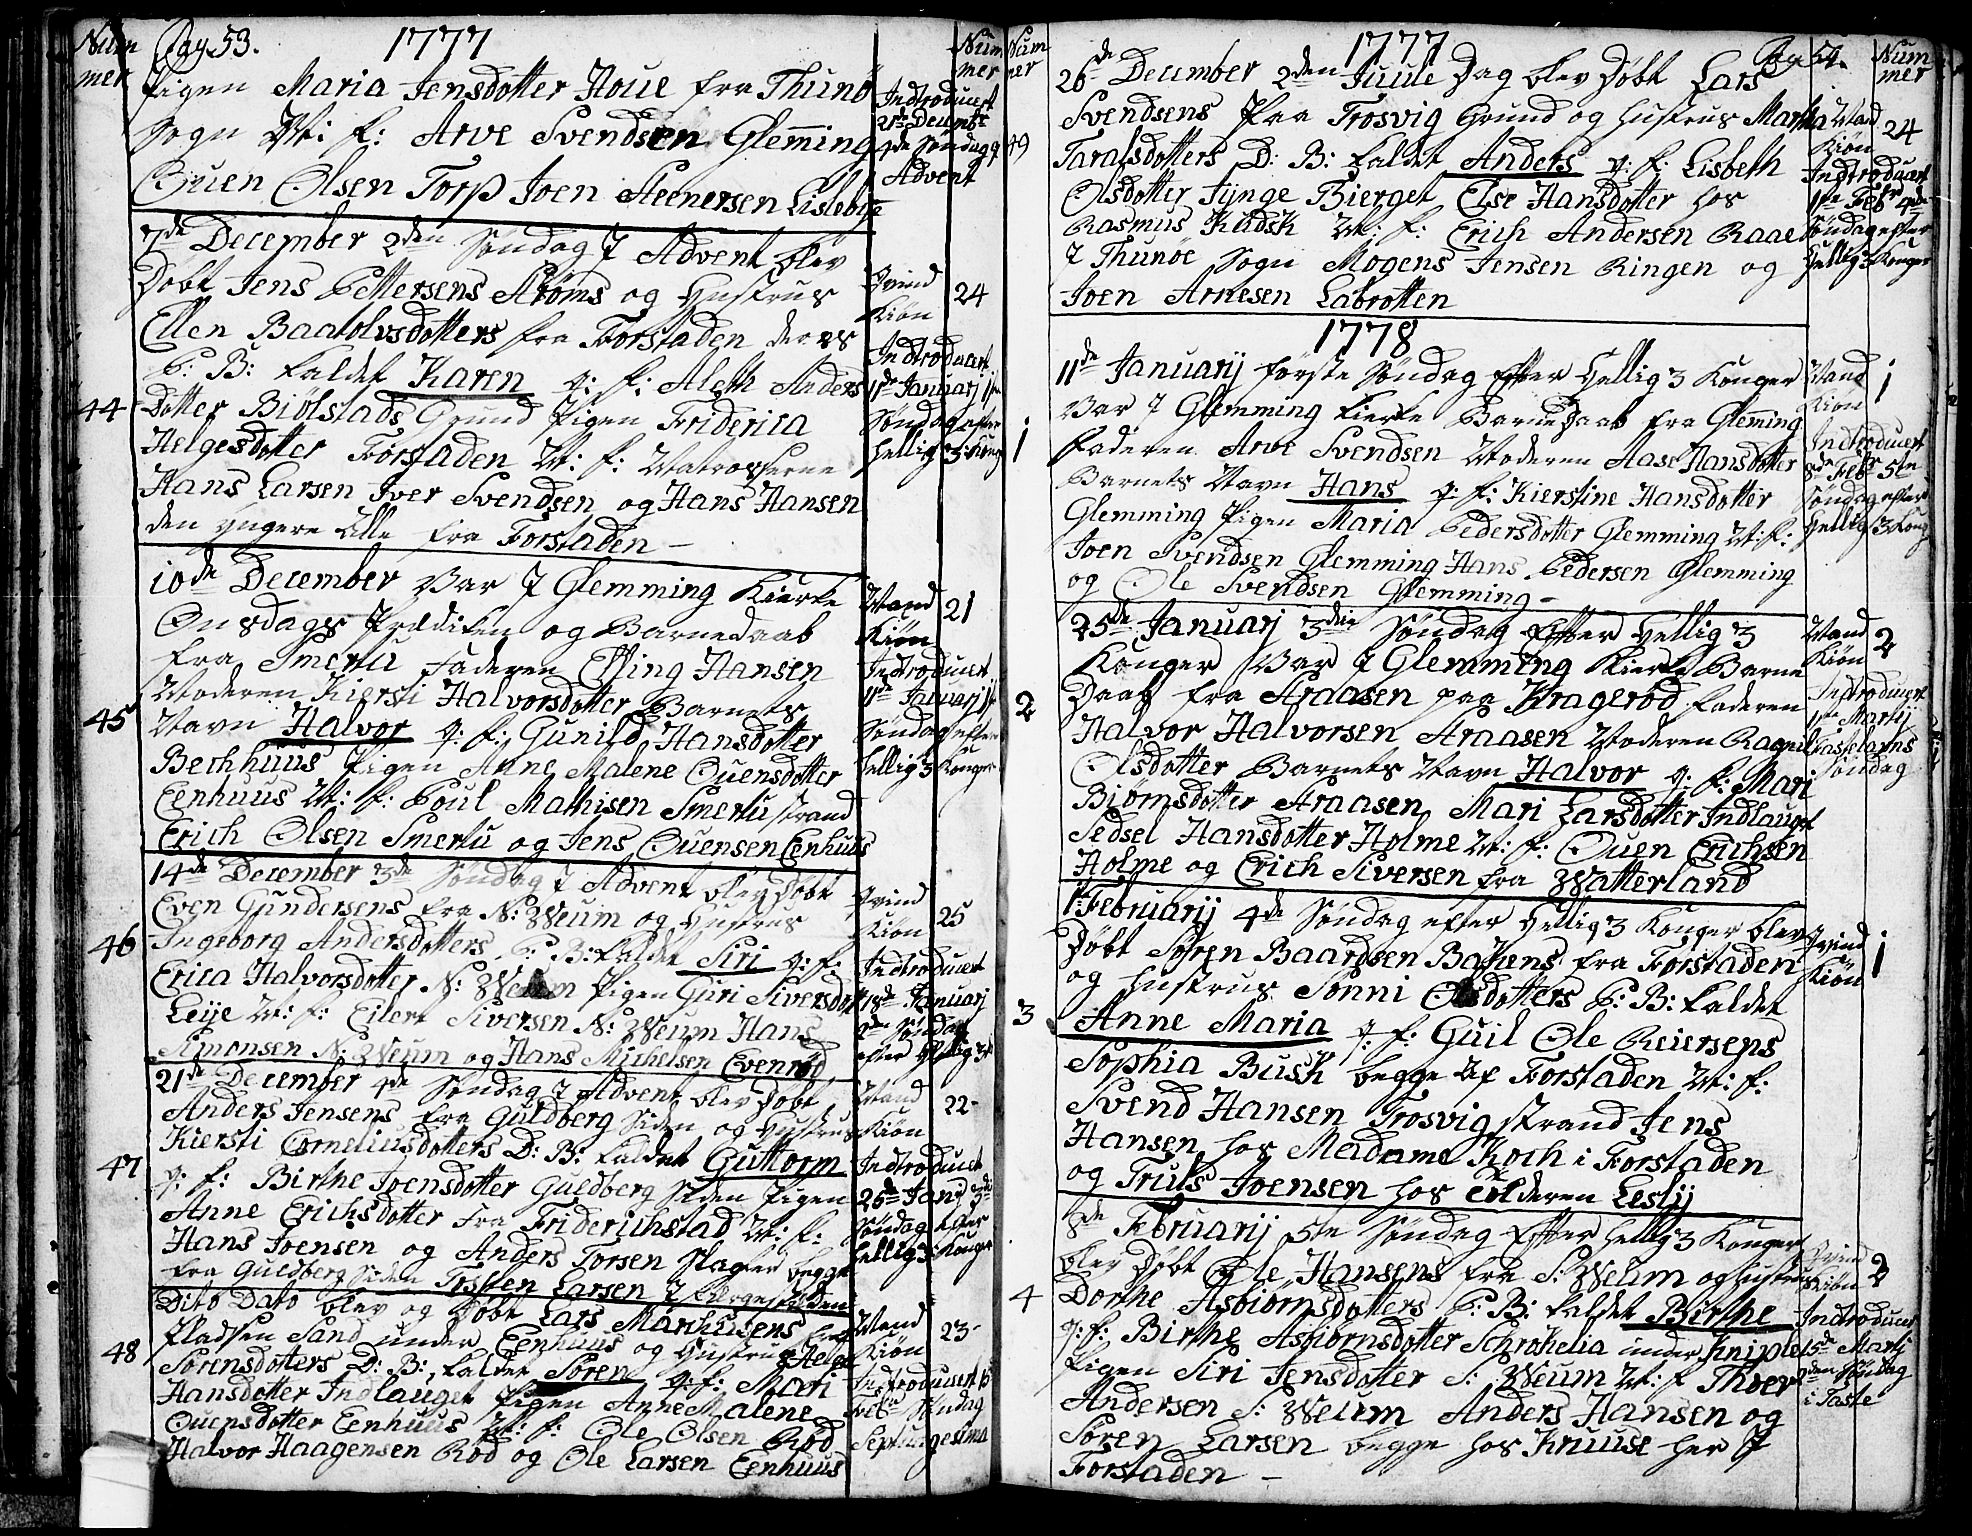 Num
mer
Pag. 53.
1777
Num
mer
Pigen Maria Jensdotter Houe fra Thunø
Sogn M: f: Arve Svendsen Glemming
Ouen Olsen Torp Joen Steenersen Lislebye
Indtroduert
21de Decembr
4de Søndag
Advent
7de December 2den Søndag J Advent blev
Døbt Jens Pettersens Strøms og Hustrus
Ellen Baaroldsdotters fra Forstaden deres
P: B: kaldet Karen q: f: Aleth Anders
44
Dotter Biølstads Grund Pigen Friderica
Helgesdotter Forstaden M: f: Matrosserne
Hans Larsen Iver Svendsen og Hans Hansen
den Yngere alle fra Forstaden -
Qvind
Kiøn
24
Indtroduert
11de Januarj 1ste
Søndag efter
Hellig 3 Kong
10de December Var J Glemming Kierke
Onsdags Prædiken og Barnedaab
fra Smertu Faderen Effing Hansen
Moderen Kiersti Halvorsdotter Barnets
45
Navn Halvor q: f: Gunild Hansdotter
Bechhuus Pigen Anne Malene Ouensdotter
Eenhuus M: f: Poul Mathisen Smertu strand
Erich Olsen Smertu og Jens Ouensen Eenhuus
Mand
Kiøn
21
Indtroduert
11de Januarj 1ste
Søndag efter
Hellig 3 Konger
14de December 3de Søndag J Advent blev Døbt
Even Gundersens fra N: Weum og Hustrus
46
Ingeborg Andersdotters P: B: kaldet Siri q: f:
Erica Halvorsdotter N: Weum Pigen Guri Siversdott
Leije M: f: Eilert Siversen N: Weum Hans
Simonsen N: Weum og Hans Michelsen Evenrød
Qvind
Kiøn
25
Indtroduert
18de Januarj
2den Søndag
efter Hellig 3 K
21de December 4de Søndag J Advent blev Døbt
Anders Jensens fra Guldberg Siden og Hustrus
Kiersti Corneliusdotters D: B: kaldet Guttorm
47
q: f: Birthe Joensdotter Guldberg Siden Pigen
Anne Erichsdotter fra Friderichstad M: f:
Hans Joensen og Anders Torsen Slager begge
fra Guldberg Siden Tosten Larsen J
Mand
Kiøn
22-
Indtroduert
25de Janrj 3die
Søndag efter
Hellig 3 Konger
Dito Dato blev og Døbt Lars Marchusens fra
Pladsen Sand under Eenhuus og Hustrus Helge
48
Sørensdotters D: B: kaldet Søren q: f: Mari
Hansdotter Indlauget Pigen Anne Malene
Ouensdotter Eenhuus M: f: Ole Olsen Rød
Halvor Haagensen Rød og Ole Larsen Eenhuus
Mand
Kiøn
23-
Indtroduert 15
Febr Søndag
Septuagesima
Num
mer
1777
Pag 54.
Num
mer
26de December 2den Juule Dag blev Døbt Lars
Svendsens Paa Trosvig Grund og Hustrus Martha
49
Taralsdotters D: B: kaldet Anders q: f: Lisbeth
Olsdotter Tynge Bierget Else Hansdotter hos
Rasmus Kudsk M: f: Erich Andersen Raae
J Thunøe Sogn Mogens Jensen Ringen og
Joen Arnesen Labrotten
Mand
Kiøn
24
Indtroduert
1ste Febr 4de
Søndag efter
Hellig 3 Konger
1778
11de Januarij første Søndag Efter Hellig 3 Konger
Var J Glemming Kierke Barnedaab fra Glemming
1
Faderen Arve Svendsen Moderen Aase Hansdotter
Barnets Navn Hans q: f: Kierstine Hansdotter
Glemming Pigen Maria Pedersdotter Glemming M: f:
Joen Svendsen Glemming Hans Pedersen Glemming
og Ole Svendsen Glemming -
Mand
Kiøn
1
Indtroduert
8de Febr 5te
Søndag efter
Hellig 3 Kong
25de Januarj 3die Søndag Efter Hellig 3
Konger Var J Glemming Kierke Barne
2
Daab fra Araasen paa Kragerød Faderen
Halvor Halvorsen Araasen Moderen Ragnil
Olsdotter Barnets Navn Halvor q: f: Mari
Biørnsdotter Araasen Mari Larsdotter Indlauget
Sedsel Hansdotter Holme M: f: Ouen Erichsen
Holme og Erich Siversen fra Watterland
Mand
Kiøn
2
Indtroduert
1ste Martij
Fastelavns
Søndag
1 Februarij 4de Søndag efter Hellig 3 Konger blev
Døbt Søren Baardsen Bakens fra Forstaden
og Hustrus Sonni Olsdotters P: B: kaldet
3
Anne Maria q: f: Guil Ole Reiersens
Sophia Bush begge af Forstaden M: f:
Svend Hansen Trosvig strand Jens
Hansen hos Madame Koch i Forstaden
og Truls Joensen hos Leslij
Qvind
Kiøn
1
8de Februarij 5te Søndag Efter Hellig 3 Konger
blev Døbt Ole Hansens fra S: Weum og Hustrus
4
Dorthe Asbiørnsdotters P: B: kaldet Birthe
q: f: Birthe Asbiørnsdotter Schrohelia under Kniple
Pigen Siri Jensdotter S: Weum M: f Thoer
Andersen S: Weum Anders Hansen og
Søren Larsen begge hos Kruuse her J
Forstaden -
Qvind
Kiøn
2
Indtroduert
15de Martj
2den Søndag
i Faste